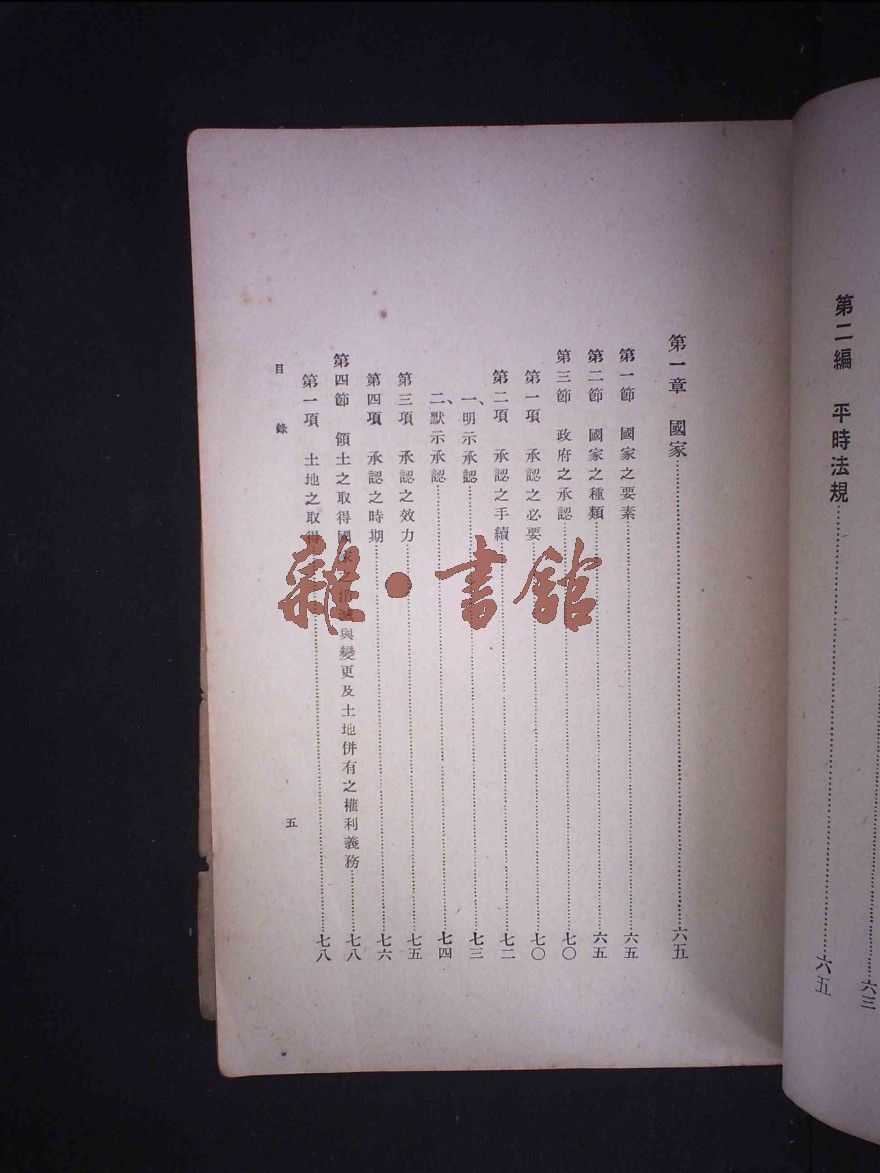 ……六三
第二編　平時法規……六五
第一章　國家……六五
第一節　國家之要素……六五
第二節　國家之種類……六五
第三節　政府之承認……七〇
第一項　承認之必要……七〇
第二項　承認之手續……七二
一、明示承認……七三
二、默示承認……七四
第三項　承認之效力……七五
第四項　承認之時期……七六
第四節　領土之取得國家之消滅與變更及土地併有之權利義務……七八
第一項　土地之取得……七八
目錄
五
雜・書館